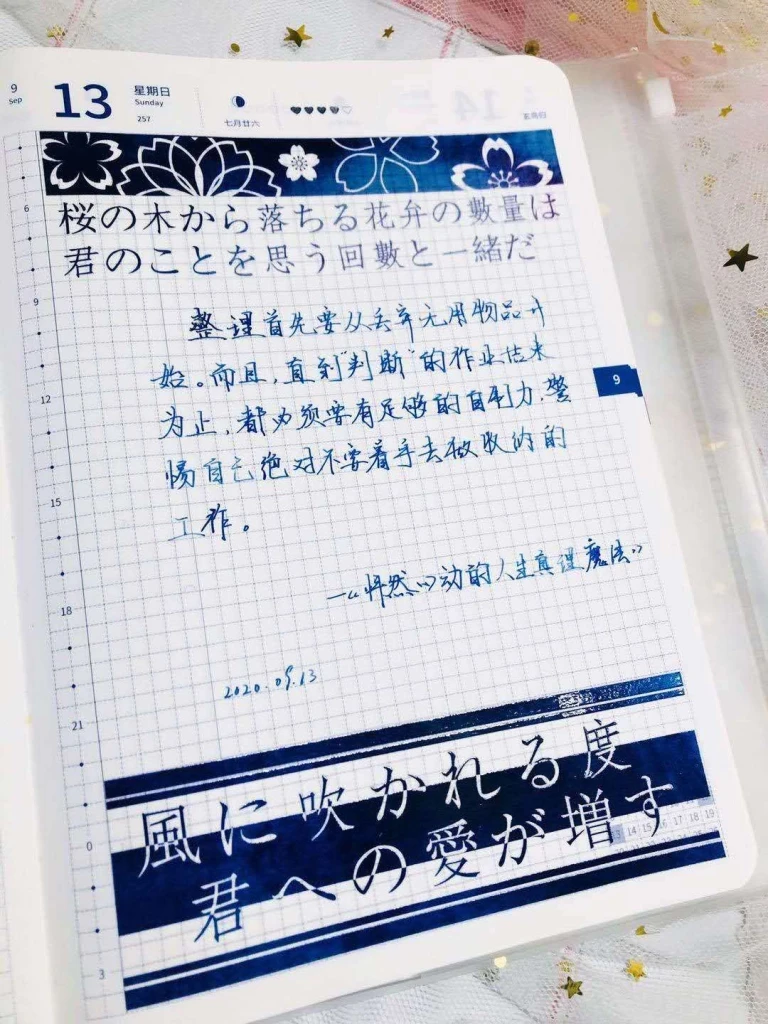 9
Sep
13
星期日
Sunday
257
七月廿六
14
桜の木から落ちる花弁の數量は
君のことを思う回數と一緒だ
6
9
12
15
18
21
0
3
整理首先要从丢弃无用物品开
始。而且,直到"判断"的作业结束
为止,都必须要有足够的自制力,警
惕自己绝对不要着手去做收纳的
工作。
—《怦然心动的人生真理魔法》
2020.09.13
9
風に吹かれる度
君への愛が増す
13 14 15 16 17 18 19